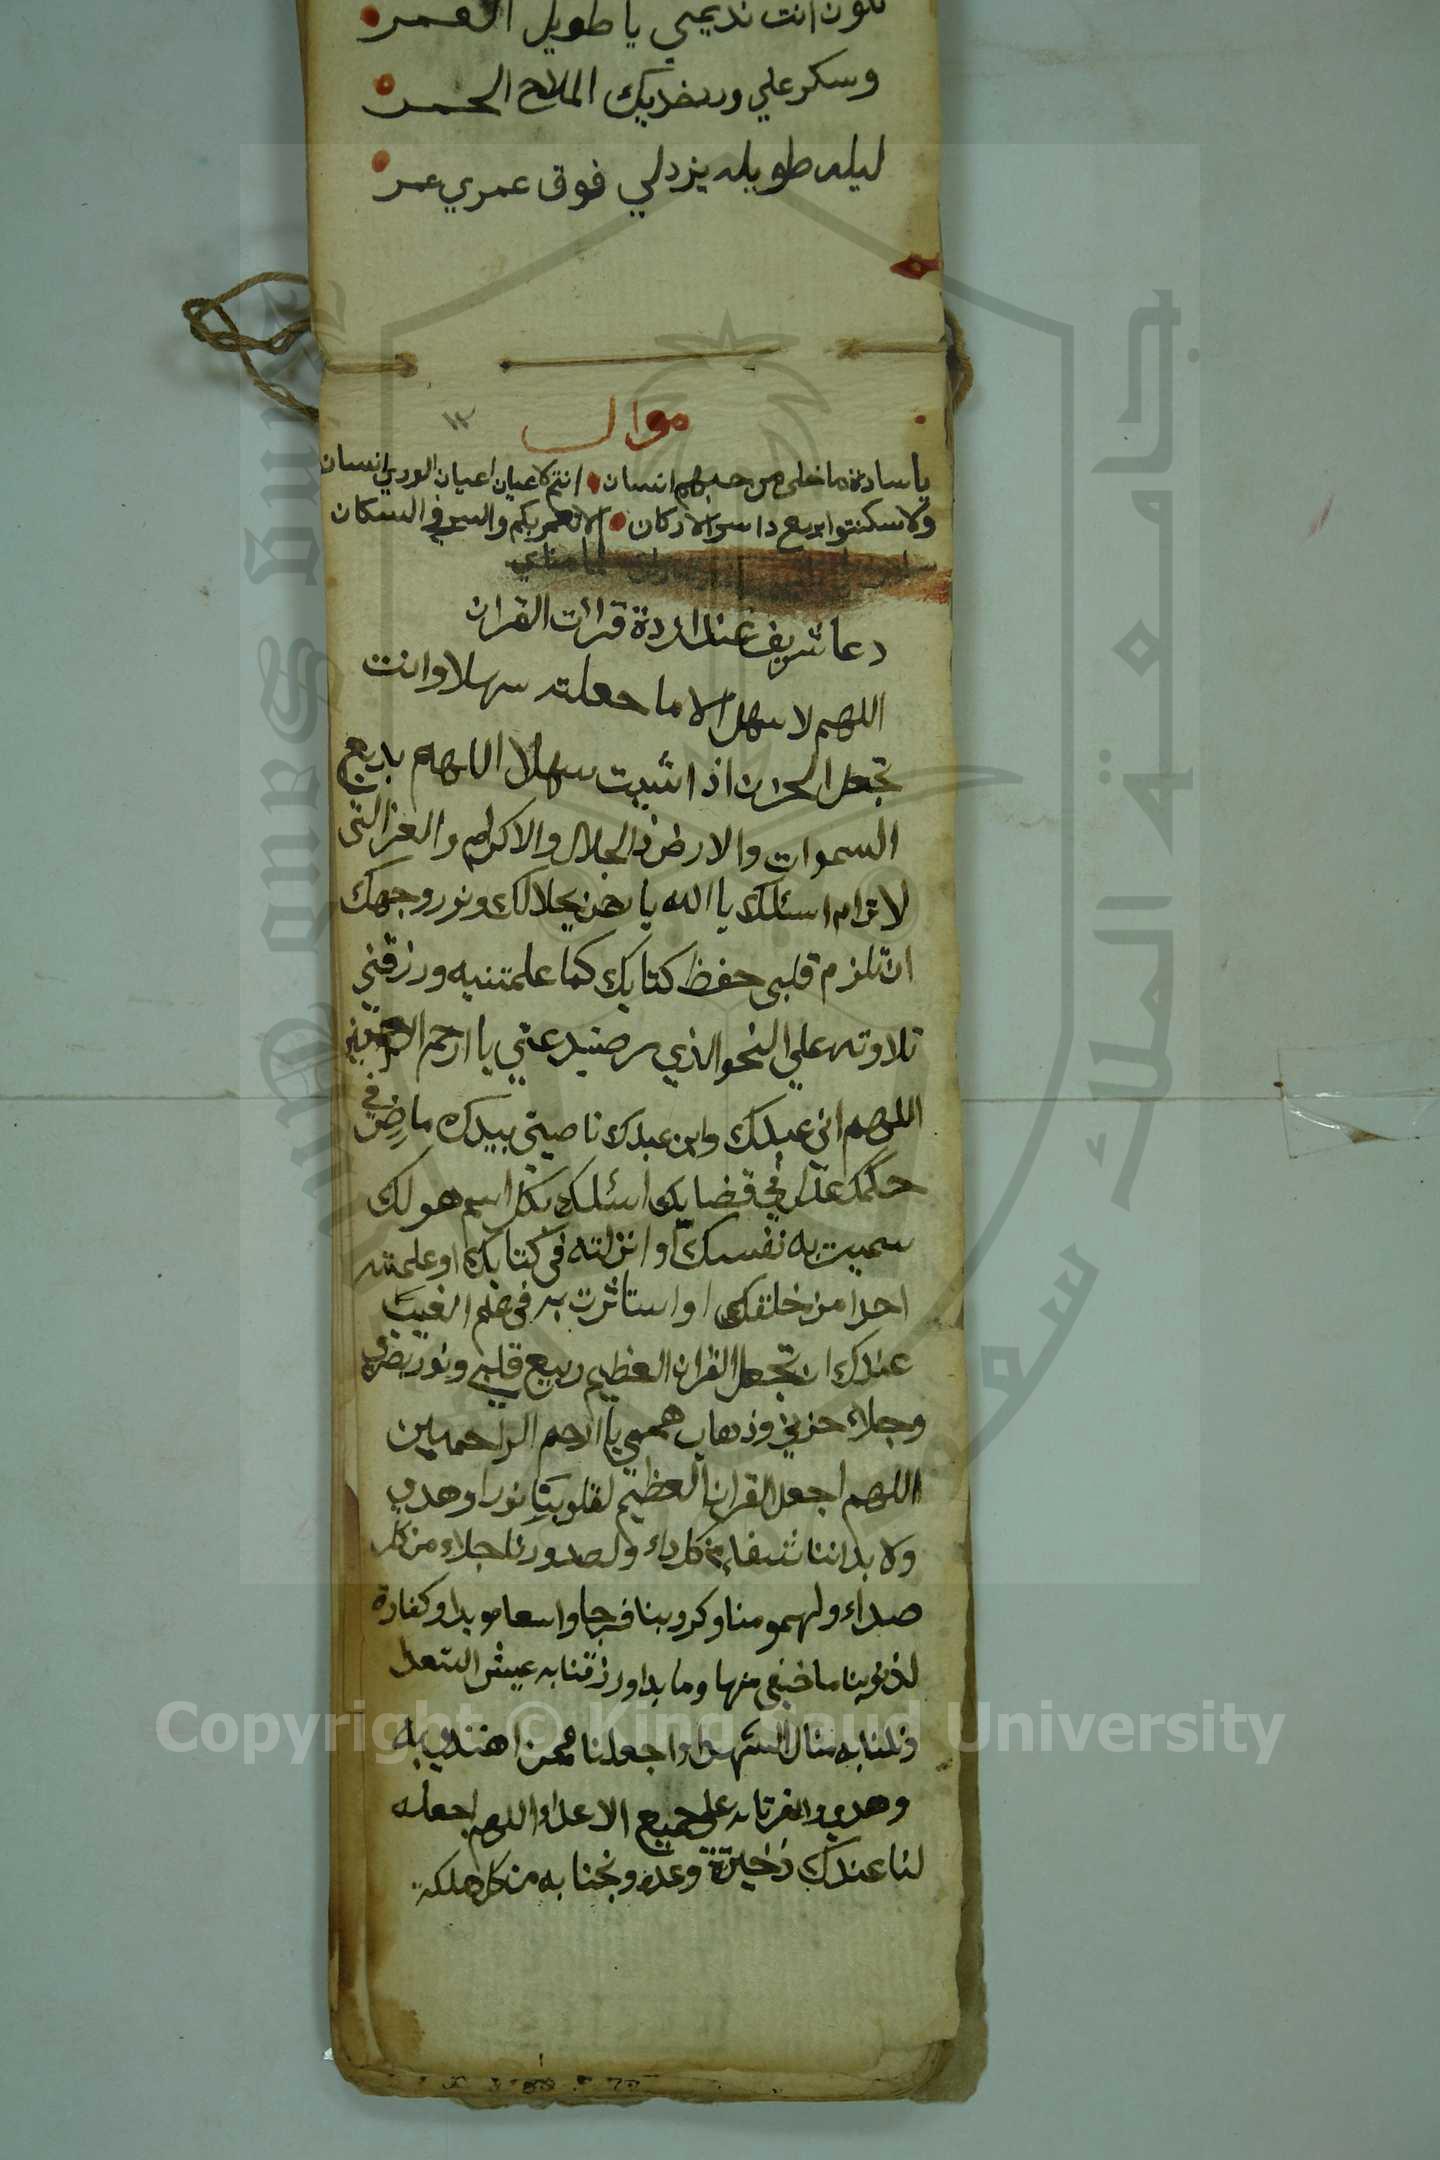 تكون انت نديمي يا طويل العمر
وسكر علي ورد خديك الملاح الحمر
ليله طويله يزدلي فوق عمري عمر
موال
١٣
يا سادة ما خلى من حبهم انسان انتم لاعيان اعيان الوري انسان
ولا سكنتوا بربع داسر الاركان الا تعمر بكم والسر في السكان
دعا شريف عند اردة قرات القران
اللهم لا سهل الا ما جعلته سهلا وانت
تجعل الحزن اذا شيت سهلا اللهم بديع
السموات والارض ذالجلال والاكرام والعز التي
لا ترام اسئلك يا الله يا رحمن بجلالك ونور وجهك
ان تلزم قلبي حفظ كتابك كما علمتنيه ورزقني
تلاوته علي النحو الذي يرضيد عني يا ارحم الراحمين
اللهم اني عبدك وابن عبدك ناصيتي بيدك ماض في
حكمك عدل في قضايك اسئلك بكل اسم هو لك
سميت به نفسك او انزلته في كتابك او علمته
احدا من خلقك او استاثرت به في علم الغيب
عندك ان تجعل القران العظيم ربيع قلبي ونور بصري
وجلاء حزني وذهاب همي يا ارحم الراحمين
اللهم اجعل القران العظيم لقلوبنا نورا وهدي
ولا بداننا شفاء من كل داء ولصدورنا جلاء من كل
صداء ولهمومنا وكروبنا فرجا واسعا موبدا وكفارة
لذنوبنا ما خفي منها وما بدا ورزقنا به عيش السعدا
ونلنا به منال الشهدا واجعلنا ممن اهتدي به
وهدي وانفرنا به على جميع الاعداء اللهم اجعله
لنا عندك ذخيرة وعده ونجنا به من كل هلكه
Copyright © King Saud University
King Saud University
جامعة الملك سعود